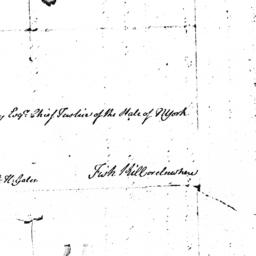 y Esqr. Chief Justice of the State of N York
H Gates
Fish Kill or elsewhere